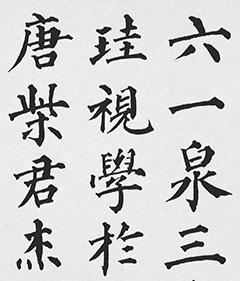 六一泉三
珪視學於
唐柴君杰